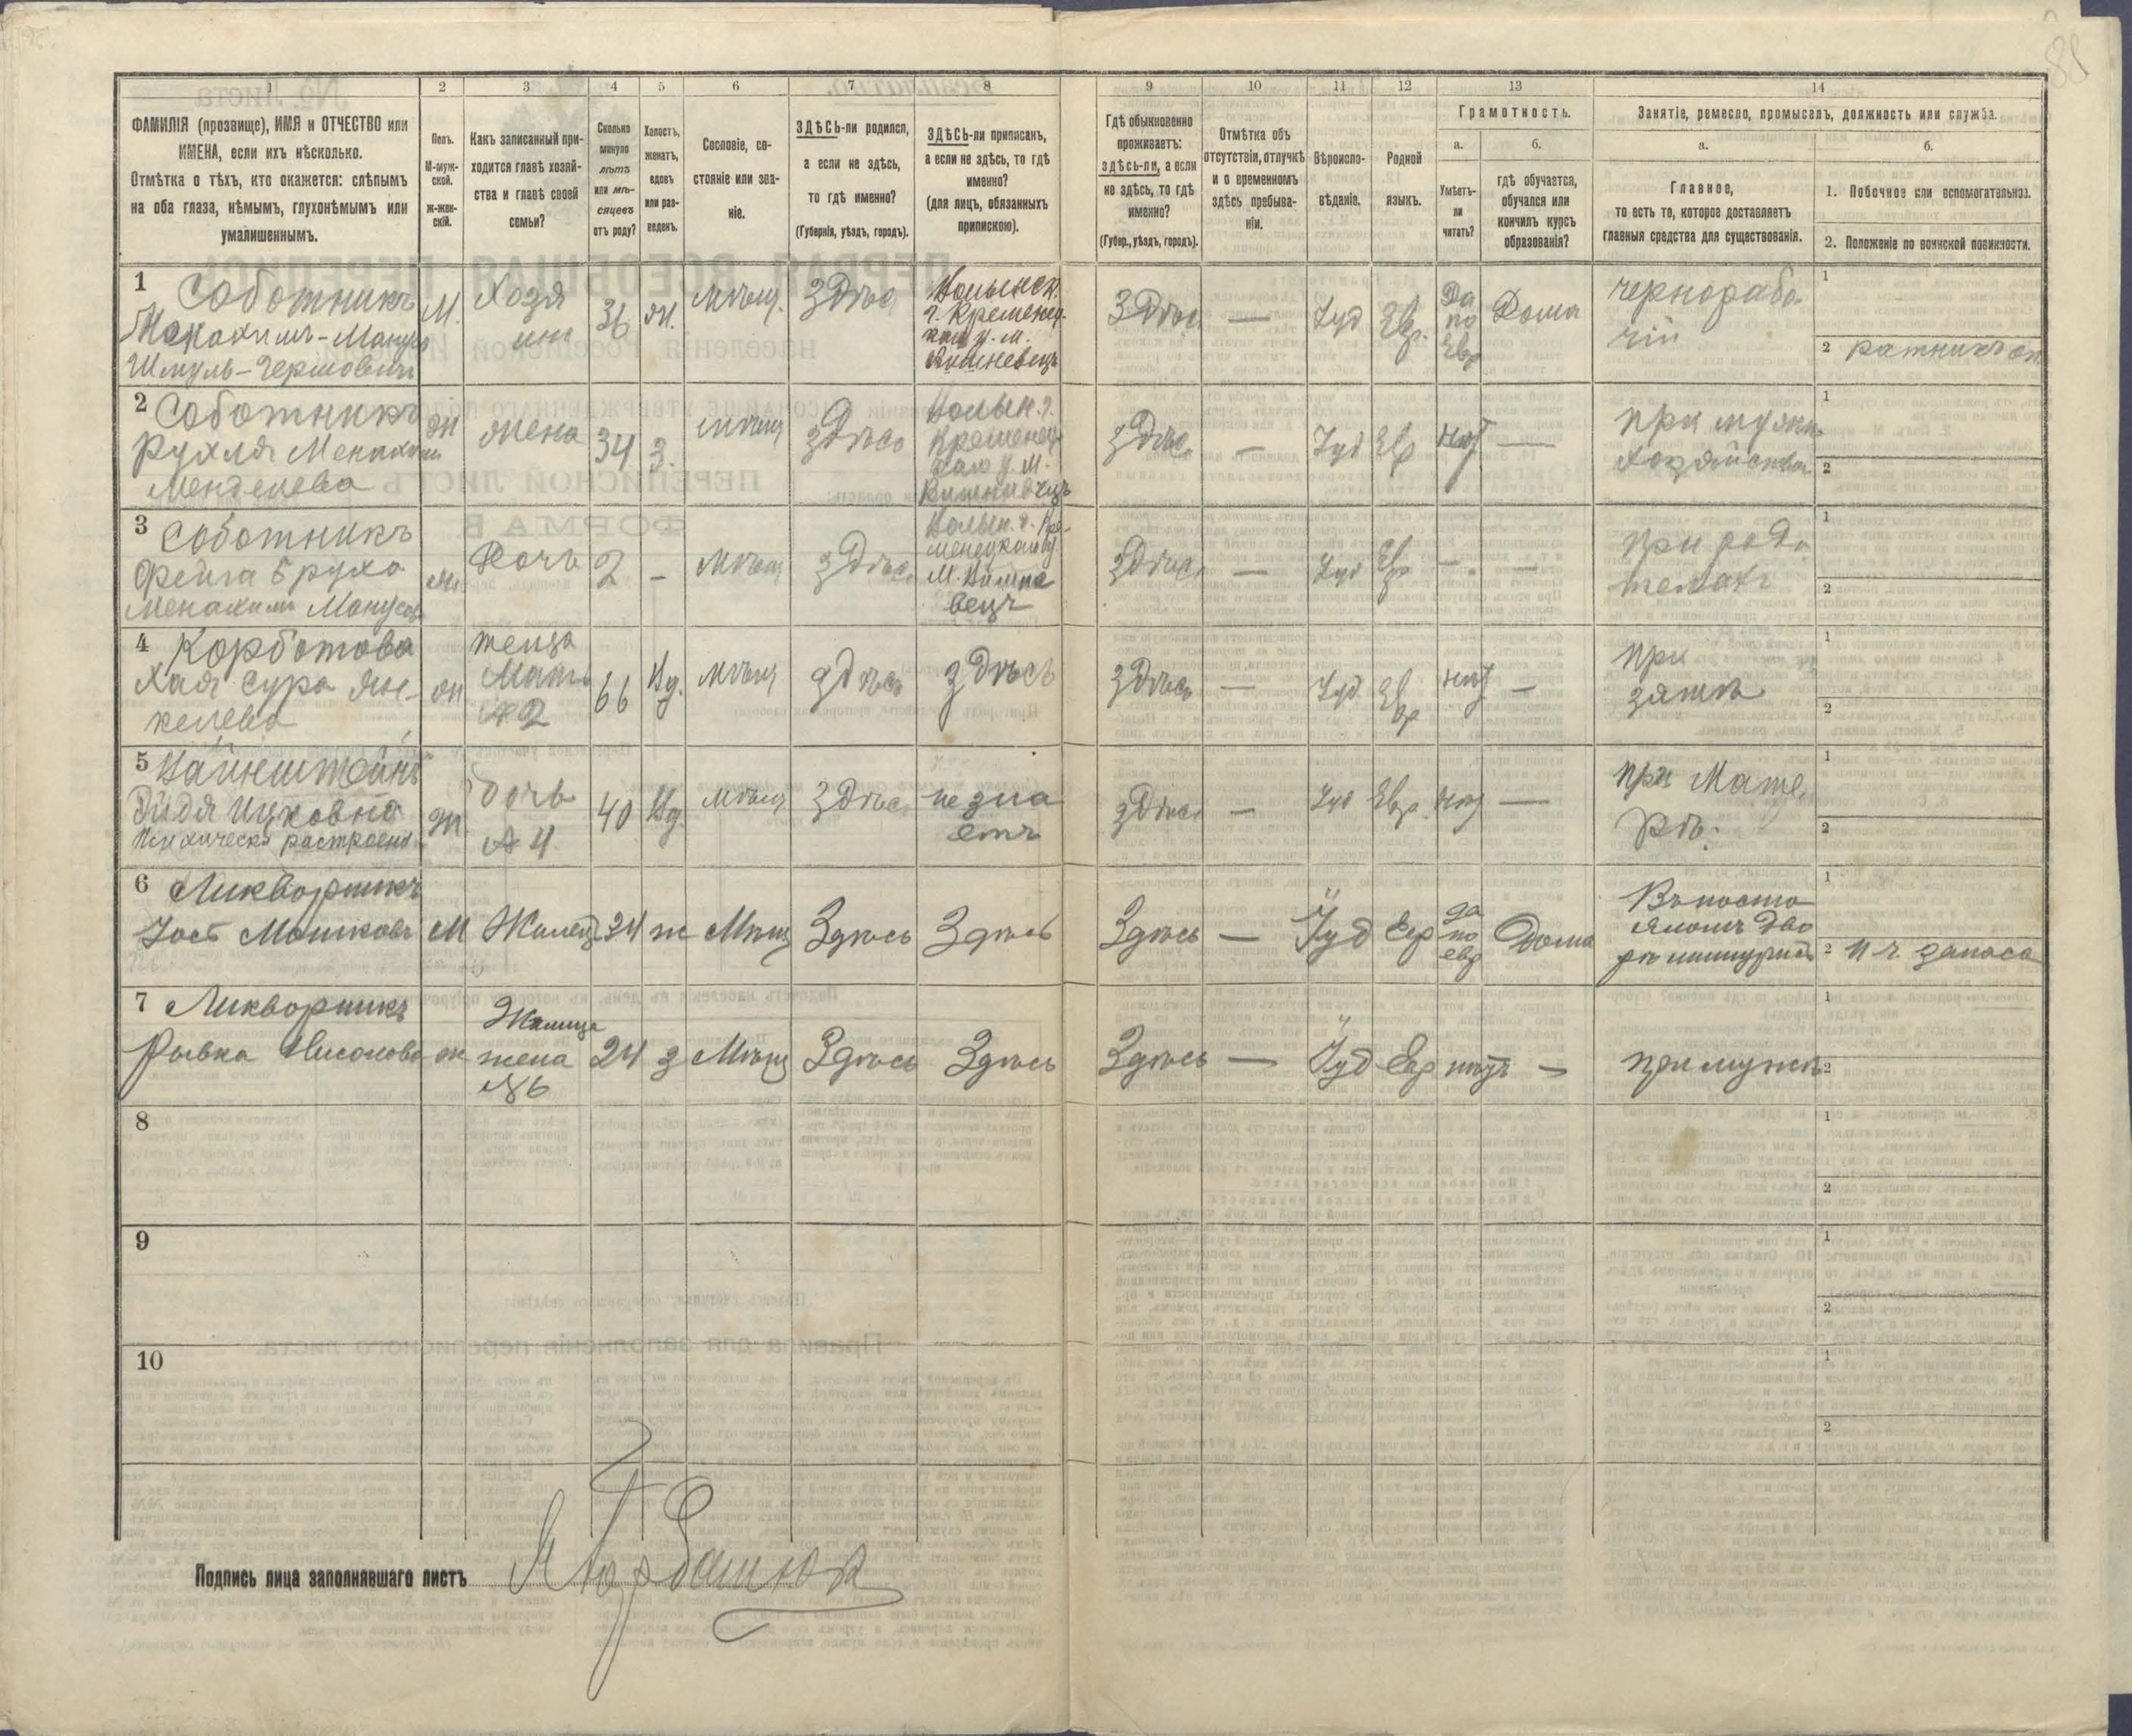 1 2 3 4 5 6 7 8 9 10 11 12 13 14
ФАМИЛІЯ (прозвище), ИМЯ и ОТЧЕСТВО или
ИМЕНА, если ихъ нѣсколько.
Отмѣтка о тѣхъ, кто окажется: слѣпымъ
на оба глаза, нѣмымъ, глухонѣмымъ или
умалишеннымъ.
Полъ.
М-муж-
ской.
ж-жен-
скій.
Какъ записанный при-
ходится главѣ хозяй-
ства и главѣ своей
семьи?
Сколько
минуло
лѣтъ
или мѣ-
сяцевъ
отъ роду?
Холостъ,
женатъ,
вдовъ
или раз-
веденъ.
Сословіе, со-
стояніе или зва-
ніе.
ЗДѢСЬ-ли родился,
а если не здѣсь,
то гдѣ именно?
(Губернія, уѣздъ, городъ).
ЗДѢСЬ-ли приписанъ,
а если не здѣсь, то гдѣ
именно?
(для лицъ, обязанныхъ
припискою).
Гдѣ обыкновенно
проживаетъ:
здѣсь-ли, а если
не здѣсь, то гдѣ
именно?
(Губер., уѣздъ, городъ).
Отмѣтка объ
отсутствіи, отлучкѣ
и о временномъ
здѣсь пребыва-
ніи.
Вѣроиспо-
вѣданіе.
Родной
языкъ.
Грамотность.
а.
Умѣетъ-
ли
читать?
б.
гдѣ обучается,
обучался или
кончилъ курсъ
образованія?
Занятіе, ремесло, промыселъ, должность или служба.
а.
Главное,
то есть то, которое доставляетъ
главныя средства для существованія.
б.
1. Побочное или вспомогательное.
2. Положеніе по воинской повинности.
1 Соботникъ
Шмуль-Гершовичъ
М.
Хозя
ин
36
ж.
Мѣщ.
Здѣсь
Волынск.
г. Кременец
каго у. м.
Вишневецъ
Здѣсь
—
Іуд
Евр.
Да
по
Евр
Дома
чернорабо-
чій
1
2 ратникъ оп
2 Соботникъ
Рухля
Менделева
ж
жена
34
З.
мѣщ
здѣсь
Волын. г.
Кременец
каго у. М.
Вишневецъ
здѣсь
—
Іуд
Евр
нѣт
—
при мужн.
хозяйства
1
2
3 Соботникъ
Фейга Бруха
ж
Дочь
2
–
Мѣщ
здѣсь
Волын. г. Кре-
менецкаго у.
М. Вишне
вецъ
здѣсь
—
Іуд
Евр
—
—
При роди
телахъ
1
2
4 Корботова
Хая Сура Ян-
келева
ж
теща
Мать
№ 2
66
Вд.
мѣщ
здѣсь
здѣсь
здѣсь
—
Іуд
Евр
нѣт
—
при
зятѣ
1
2
5 Вайнштейнъ
Ицковна
Психически растроена
ж
дочь
№ 4
40
Вд
мѣщ
здѣсь
не зна
етъ
здѣсь
—
Іуд
Евр
нѣт
—
при Мате
рѣ.
1
2
6 Ликворникъ
Іось Мошковъ
М
Жилец
24
ж
Мѣщ
Здѣсь
Здѣсь
Здѣсь
—
Іуд
Евр
да
по
евр
Дома
Въ посто
яломъ дво
рѣ
1
2 н ч. запаса
7 Ликворникъ
Рывка Нисонова
ж
Жилица
жена
№6
24
з
Мѣщ
Здѣсь
Здѣсь
Здѣсь
—
Іуд
Евр
нѣтъ
—
при мужѣ
1
2
8
1
2
9
1
2
10
1
2
Подпись лица заполнявшаго листъ